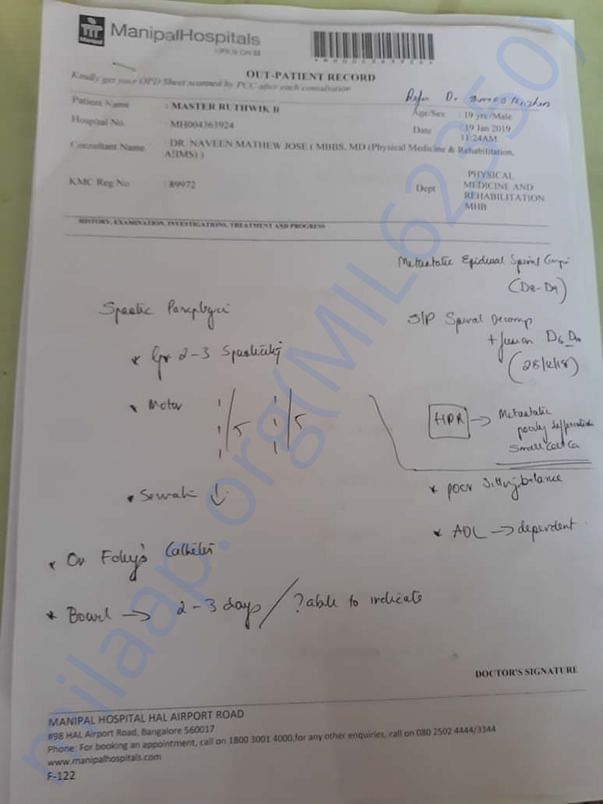 ManipalHospitals
LIFE'S ON
OUT-PATIENT RECORD
Kindly get your OPD Sheet scanned by PCC after each consultation
Refer Dr.
Patient Name : MASTER RUTHWIK R
Age/Sex : 19 yrs /Male
Hospital No. : MH004363924
Date : 19 Jan 2019
11:24AM
Consultant Name : DR. NAVEEN MATHEW JOSE ( MBBS, MD (Physical Medicine & Rehabilitation, AIIMS) )
KMC Reg No : 89972
Dept PHYSICAL
MEDICINE AND
REHABILITATION
MHB
HISTORY, EXAMINATION, INVESTIGATIONS, TREATMENT AND PROGRESS
Metastatic Epidural Spinal
(D8-D9)
Spastic
S/P Spinal Decomp
+ fusion
(28/12/18)
* Gr 2-3 Spasticity
* Motor
HPR → Metastatic
poorly
small cell Ca
* poor Sitting balance
* ↓
* ADL → dependent
* On Foley's Catheter
* Bowel → 2-3 days / ? able to indicate
DOCTOR'S SIGNATURE
MANIPAL HOSPITAL HAL AIRPORT ROAD
#98 HAL Airport Road, Bangalore 560017
Phone: For booking an appointment, call on 1800 3001 4000,for any other enquiries, call on 080 2502 4444/3344
www.manipalhospitals.com
F-122
milaap.org(MIL62350)